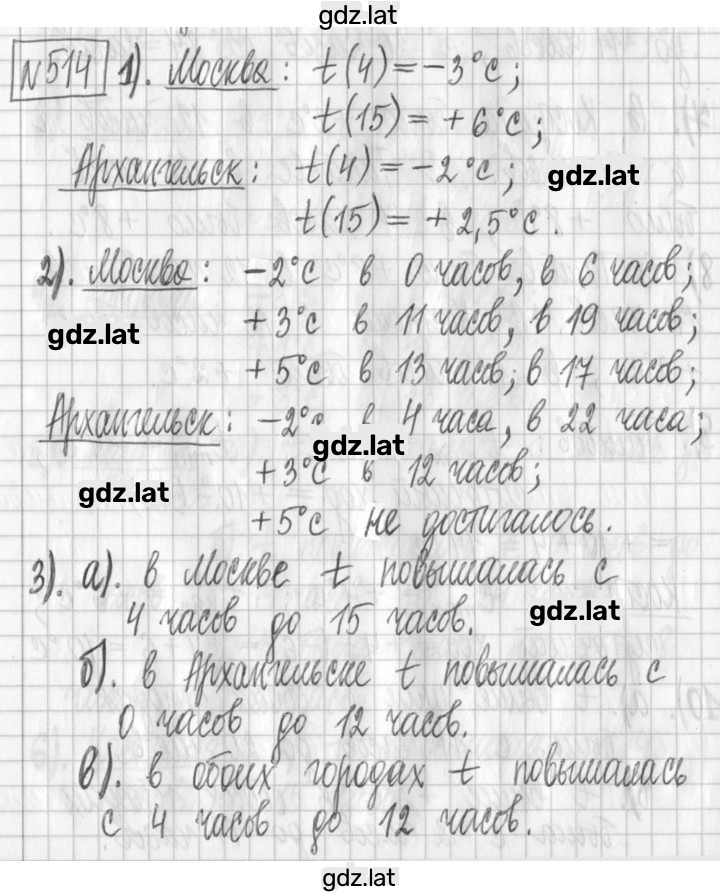 gdz.lat
№514 1). Москва: t(4)=-3°C;
t(15)= +6°C;
Архангельск: t(4)=-2°C;
gdz.lat
t(15)= +2,5°C.
2). Москва: -2°C в 0 часов, в 6 часов;
+3°C в 11 часов, в 19 часов;
gdz.lat
+5°C в 13 часов; в 17 часов;
Архангельск: -2° в 4 часа, в 22 часа;
gdz.lat
+3°C в 12 часов;
gdz.lat
+5°C не достигалось.
3). а). в Москве t повышалась с
4 часов до 15 часов.
gdz.lat
б). в Архангельске t повышалась с
0 часов до 12 часов.
в). в обоих городах t повышалась
с 4 часов до 12 часов.
gdz.lat